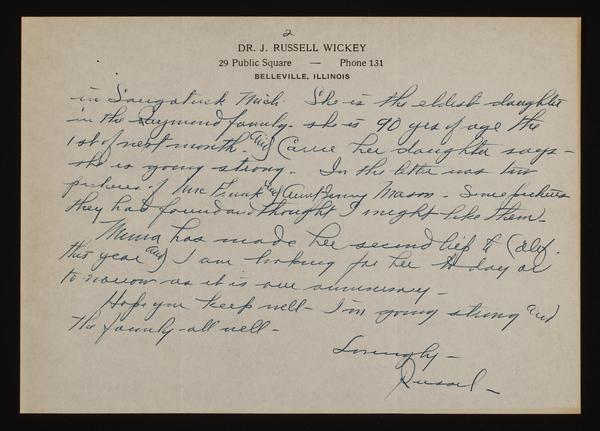 2
DR. J. RUSSELL WICKEY
29 Public Square — Phone 131
BELLEVILLE, ILLINOIS
in Saugatuck Mich. She is the eldest daughter
in the Raymond family. she is 90 yrs of age the
1st of next month. and Carrie her daughter says -
she is going strong. In the letter was two
pictures of and Aunt Jenny Mason - Some pictures
they had found and thought I might like them -
has made her second trip to Calif.
this year and I am looking for her to day or
to morrow as it is our anniversary -
Hope you keep well - I'm going strong and
the family - all well -
Lovingly -
Russel -